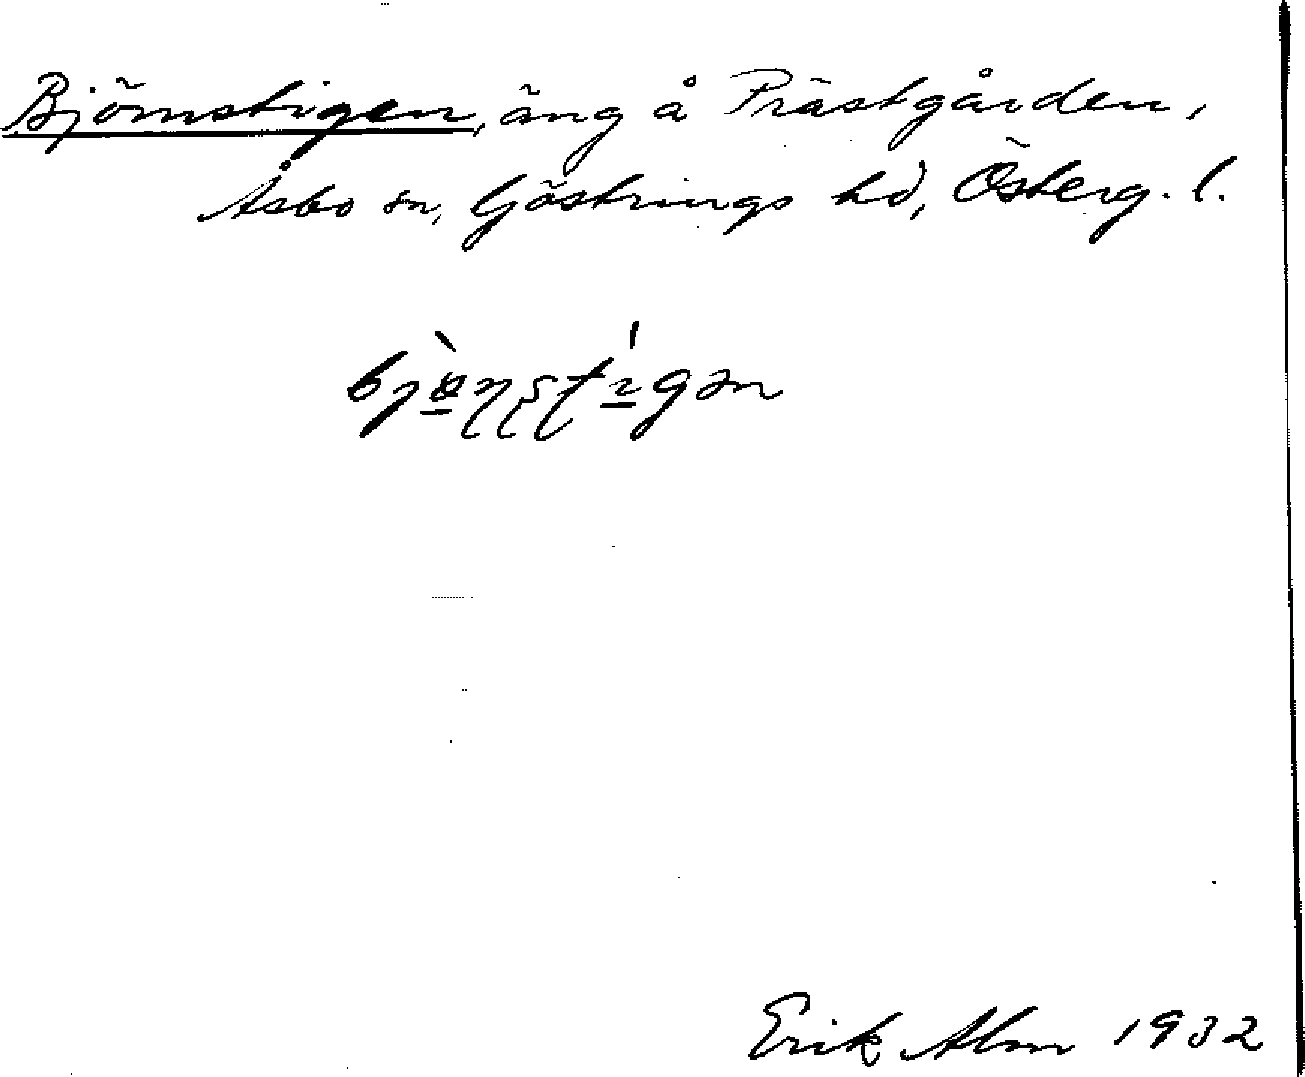 Björnstigen, äng å Prästgården,
Åsbo sn, Göstrings hd, Österg. l.
bjö̀ɳʂʈígən
Erik Alm 1932